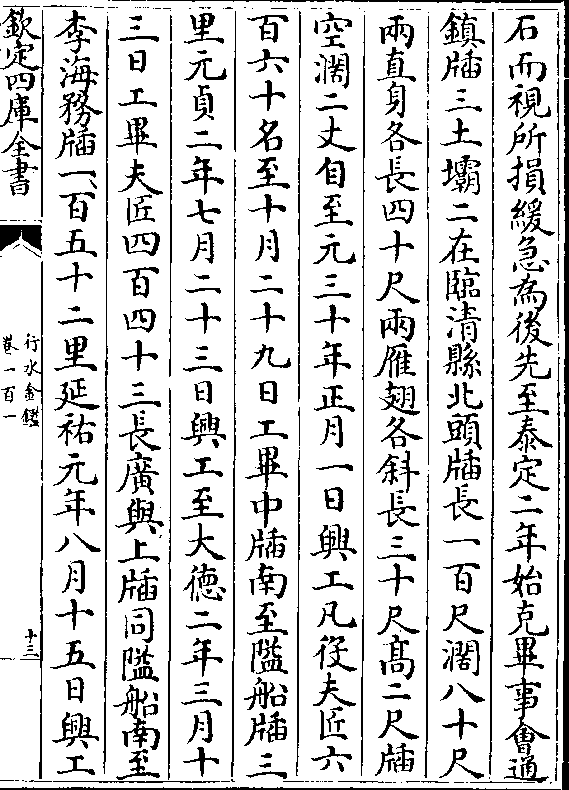 石而視所損緩急為後先至泰定二年始克畢事會通
鎮牐三土壩二在臨清縣北頭牐長一百尺濶八十尺
兩直身各長四十尺兩雁翅各斜長三十尺髙二尺牐
空濶二丈自至元三十年正月一日興工凡役夫匠六
百六十名至十月二十九日工畢中牐南至隘船牐三
里元貞二年七月二十三日興工至大德二年三月十
三日工畢夫匠四百四十三長廣與上牐同隘船南至
李海務牐一百五十二里延祐元年八月十五日興工
欽定四庫全書
行水金鑑
卷一百一
十三